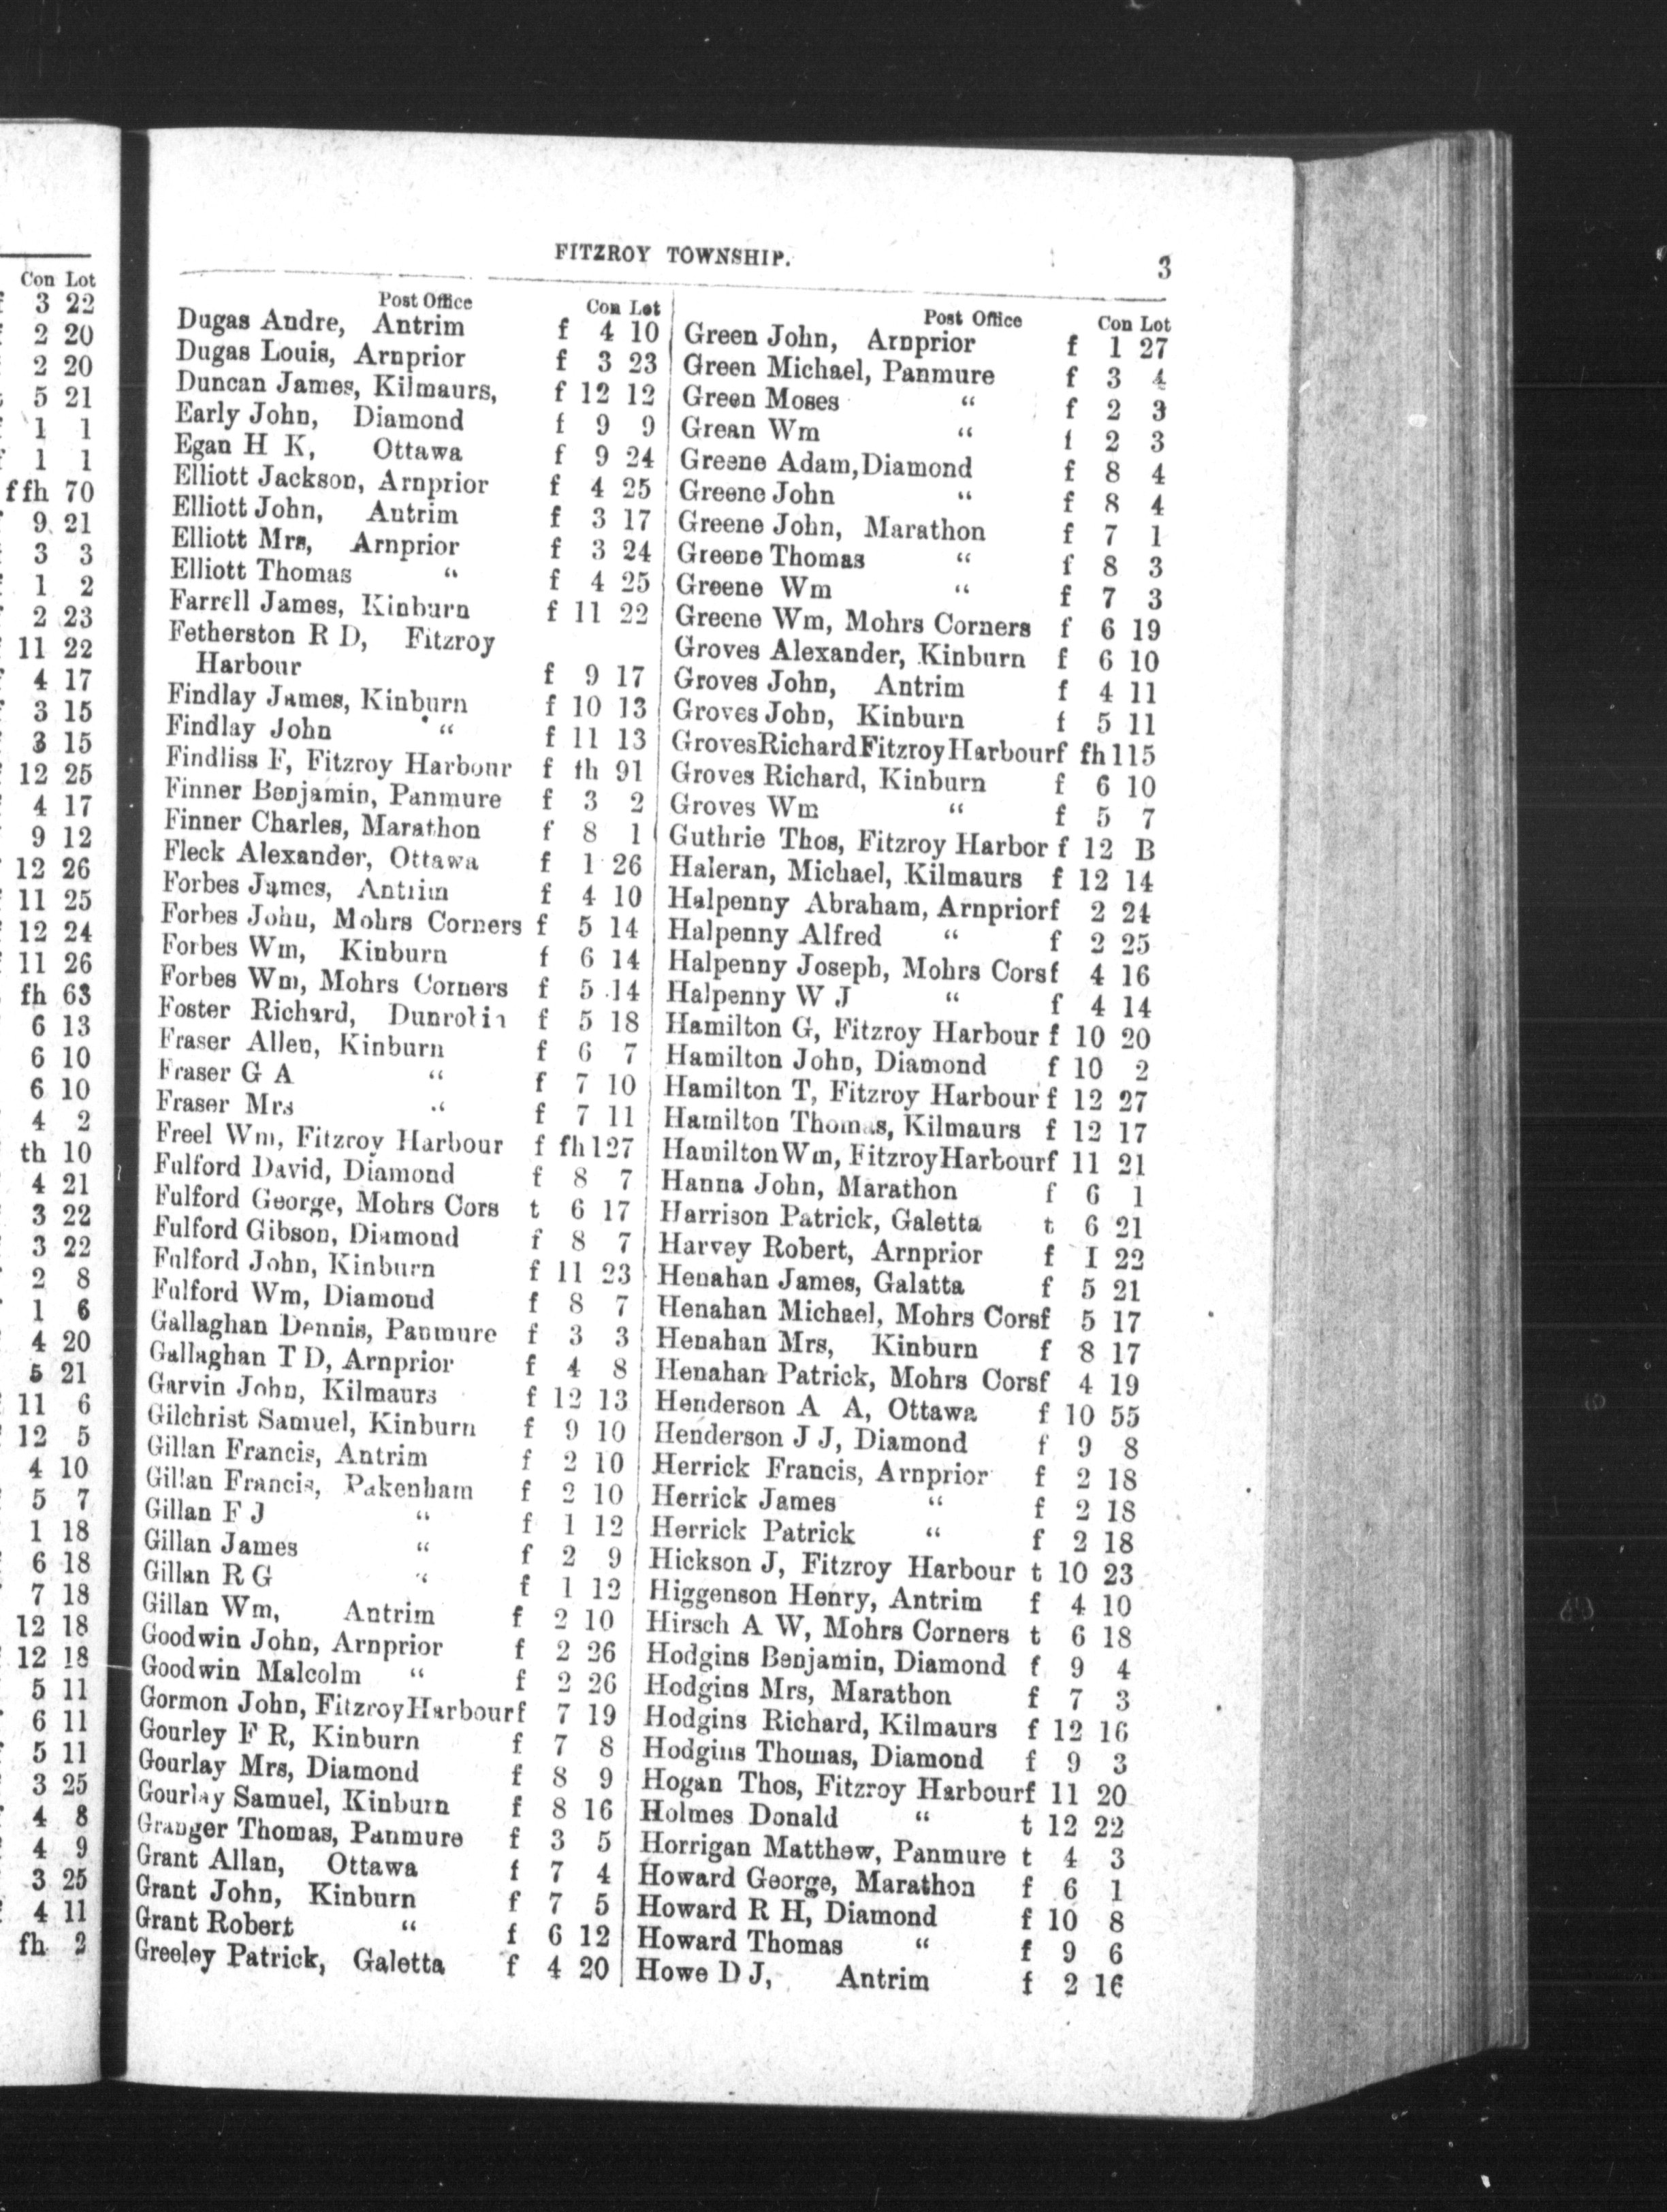 Con Lot
3 22
2 20
2 20
5 21
1 1
1 1
f fh 70
9 21
3 3
1 2
2 23
11 22
4 17
3 15
3 15
12 25
4 17
9 12
12 26
11 25
12 24
11 26
fh 63
6 13
6 10
6 10
4 2
th 10
4 21
3 22
3 22
2 8
1 6
4 20
5 21
11 6
12 5
4 10
5 7
1 18
6 18
7 18
12 18
12 18
5 11
6 11
5 11
3 25
4 8
4 9
3 25
4 11
fh 2
FITZROY TOWNSHIP.
3
Post Office Con Lot
Dugas Andre, Antrim f 4 10
Dugas Louis, Arnprior f 3 23
Duncan James, Kilmaurs, f 12 12
Early John, Diamond f 9 9
Egan H K, Ottawa f 9 24
Elliott Jackson, Arnprior f 4 25
Elliott John, Antrim f 3 17
Elliott Mrs, Arnprior f 3 24
Elliott Thomas “ f 4 25
Farrell James, Kinburn f 11 22
Fetherston R D, Fitzroy
Harbour f 9 17
Findlay James, Kinburn f 10 13
Findlay John “ f 11 13
Findliss F, Fitzroy Harbour f fh 91
Finner Benjamin, Panmure f 3 2
Finner Charles, Marathon f 8 1
Fleck Alexander, Ottawa f 1 26
Forbes James, Antrim f 4 10
Forbes John, Mohrs Corners f 5 14
Forbes Wm, Kinburn f 6 14
Forbes Wm, Mohrs Corners f 5 14
Foster Richard, Dunrobin f 5 18
Fraser Allen, Kinburn f 6 7
Fraser G A “ f 7 10
Fraser Mrs “ f 7 11
Freel Wm, Fitzroy Harbour f fh 127
Fulford David, Diamond f 8 7
Fulford George, Mohrs Cors t 6 17
Fulford Gibson, Diamond f 8 7
Fulford John, Kinburn f 11 23
Fulford Wm, Diamond f 8 7
Gallaghan Dennis, Panmure f 3 3
Gallaghan T D, Arnprior f 4 8
Garvin John, Kilmaurs f 12 13
Gilchrist Samuel, Kinburn f 9 10
Gillan Francis, Antrim f 2 10
Gillan Francis, Pakenham f 2 10
Gillan F J “ f 1 12
Gillan James “ f 2 9
Gillan R G “ f 1 12
Gillan Wm, Antrim f 2 10
Goodwin John, Arnprior f 2 26
Goodwin Malcolm “ f 2 26
Gormon John, Fitzroy Harbour f 7 19
Gourley F R, Kinburn f 7 8
Gourlay Mrs, Diamond f 8 9
Gourlay Samuel, Kinburn f 8 16
Granger Thomas, Panmure f 3 5
Grant Allan, Ottawa f 7 4
Grant John, Kinburn f 7 5
Grant Robert “ f 6 12
Greeley Patrick, Galetta f 4 20
Post Office Con Lot
Green John, Arnprior f 1 27
Green Michael, Panmure f 3 4
Green Moses “ f 2 3
Grean Wm “ f 2 3
Greene Adam, Diamond f 8 4
Greene John “ f 8 4
Greene John, Marathon f 7 1
Greene Thomas “ f 8 3
Greene Wm “ f 7 3
Greene Wm, Mohrs Corners f 6 19
Groves Alexander, Kinburn f 6 10
Groves John, Antrim f 4 11
Groves John, Kinburn f 5 11
Groves Richard Fitzroy Harbour f fh 115
Groves Richard, Kinburn f 6 10
Groves Wm “ f 5 7
Guthrie Thos, Fitzroy Harbor f 12 B
Haleran, Michael, Kilmaurs f 12 14
Halpenny Abraham, Arnprior f 2 24
Halpenny Alfred “ f 2 25
Halpenny Joseph, Mohrs Cors f 4 16
Halpenny W J “ f 4 14
Hamilton G, Fitzroy Harbour f 10 20
Hamilton John, Diamond f 10 2
Hamilton T, Fitzroy Harbour f 12 27
Hamilton Thomas, Kilmaurs f 12 17
Hamilton Wm, Fitzroy Harbour f 11 21
Hanna John, Marathon f 6 1
Harrison Patrick, Galetta t 6 21
Harvey Robert, Arnprior f I 22
Henahan James, Galatta f 5 21
Henahan Michael, Mohrs Cors f 5 17
Henahan Mrs, Kinburn f 8 17
Henahan Patrick, Mohrs Cors f 4 19
Henderson A A, Ottawa f 10 55
Henderson J J, Diamond f 9 8
Herrick Francis, Arnprior f 2 18
Herrick James “ f 2 18
Herrick Patrick “ f 2 18
Hickson J, Fitzroy Harbour t 10 23
Higgenson Henry, Antrim f 4 10
Hirsch A W, Mohrs Corners t 6 18
Hodgins Benjamin, Diamond f 9 4
Hodgins Mrs, Marathon f 7 3
Hodgins Richard, Kilmaurs f 12 16
Hodgins Thomas, Diamond f 9 3
Hogan Thos, Fitzroy Harbour f 11 20
Holmes Donald “ t 12 22
Horrigan Matthew, Panmure t 4 3
Howard George, Marathon f 6 1
Howard R H, Diamond f 10 8
Howard Thomas “ f 9 6
Howe D J, Antrim f 2 16